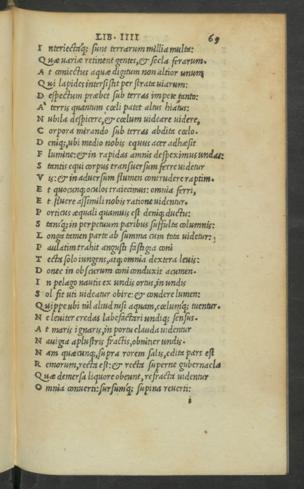 LIB. IIII 69
I nteriectaq; sunt terrarum millia multa:
Q uæ variæ retinent gentes, & secla ferarum.
A t coniectus aquæ digitum non altior unum
Q ui lapides inter sistit per strata viarum:
D espectum præbet sub terras impete tanto:
A terris quantum cœli patet altus hiatus:
N ubila despicere, & cœlum videare videre,
C orpora mirando sub terras abdita cœlo.
D eniq; ubi medio nobis equus acer adhæsit
F lumine: & in rapidas amnis despeximus undas:
S tantis equi corpus transuersum ferre videtur
V is: & in aduersum flumen contrudere raptim.
E t quocunq; oculos traiecimus: omnia ferri,
E t fluere assimili nobis ratione videntur.
P orticus æquali quamuis est deniq; ductu:
S tansq; in perpetuum paribus suffulta columnis:
L onga tamen parte ab summa cum tota videtur:
P aulatim trahit angusti fastigia coni
T ecta solo iungens, atq; omnia dextera leuis:
D onec in obscurum coni conduxit acumen.
I n pelago nautis ex undis ortus, in undis
S ol fit uti videatur obire: & condere lumen:
Q uippe ubi nil aliud nisi aquam, cœlumq; tuentur.
N e leuiter credas labefactari undiq; sensus.
A t maris ignaris, in portu clauda videntur
N auigia aplustris fractis, obnitier undis.
N am quæcunq; supra rorem salis, edita pars est
R emorum, recta est: & recta superne gubernacla
Q uæ demersa liquore obeunt, refracta videntur
O mnia conuerti: sursumq; supina reuerti:
i